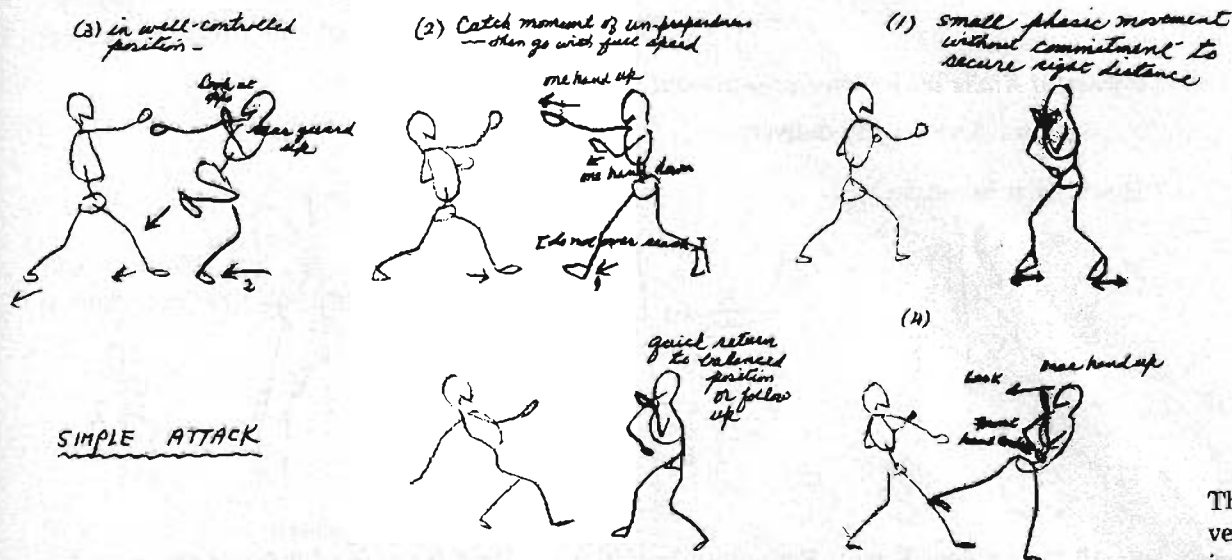 (3) in well-controlled
position -
Look at
rear guard
up
2
(2) Catch moment of un-preparedness
— then go with full speed
one hand up
one hand down
I do not over reach I
1
(1) Small phasic movement
without commitment to
secure right distance
quick return
to balanced
position
or follow
up
(4)
look
rear hand up
front
hand
SIMPLE ATTACK
Th
ve